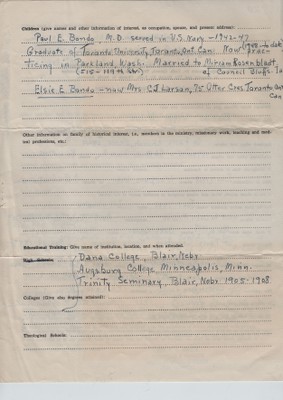 Children (give names and other information of interest, as occupation, spouse, and present address):
Paul E. Bondo, M.D. served in U.S. Navy - 1942-47
Graduate of Toronto University, Toronto, Ont. Can. Now prac-
ticing in Parkland, Wash. Married to Miriam Rosenbladt,
of Council Bluffs
Elsie E. Bondo - now Mrs. C. Larson, Toronto Ont
Can
Other information on family of historical interest, i.e., members in the ministry, missionary work, teaching and medical professions, etc.:
Educational Training: Give name of institution, location, and when attended.
High Schools:
Dana College, Blair, Nebr.
Augsburg College Minneapolis, Minn.
Trinity Seminary, Blair, Nebr. 1905-1908
Colleges (Give also degrees attained):
Theological Schools: